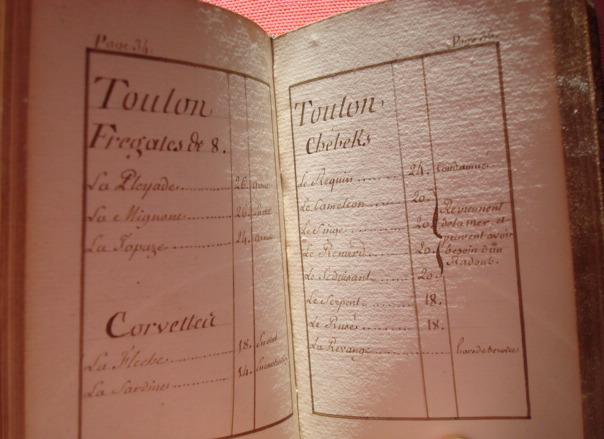 Page 34.
Toulon
Fregates de 8.
La Pleyade 26.
La Mignone 26.
La Topaze 24.
Corvettes
La Fleche 18.
La Sardine 14.
Toulon
Chébeks
Le Requin 24. Condamné
Le Cameleon 20.
Le Singe 20.
Le Renard 20.
Le Seduisant 20.
Reviennent
de la mer, et
peuvent avoir
besoin d'un
Radoub.
Le Serpent 18.
Le Rusé 18.
La Revange hors de service